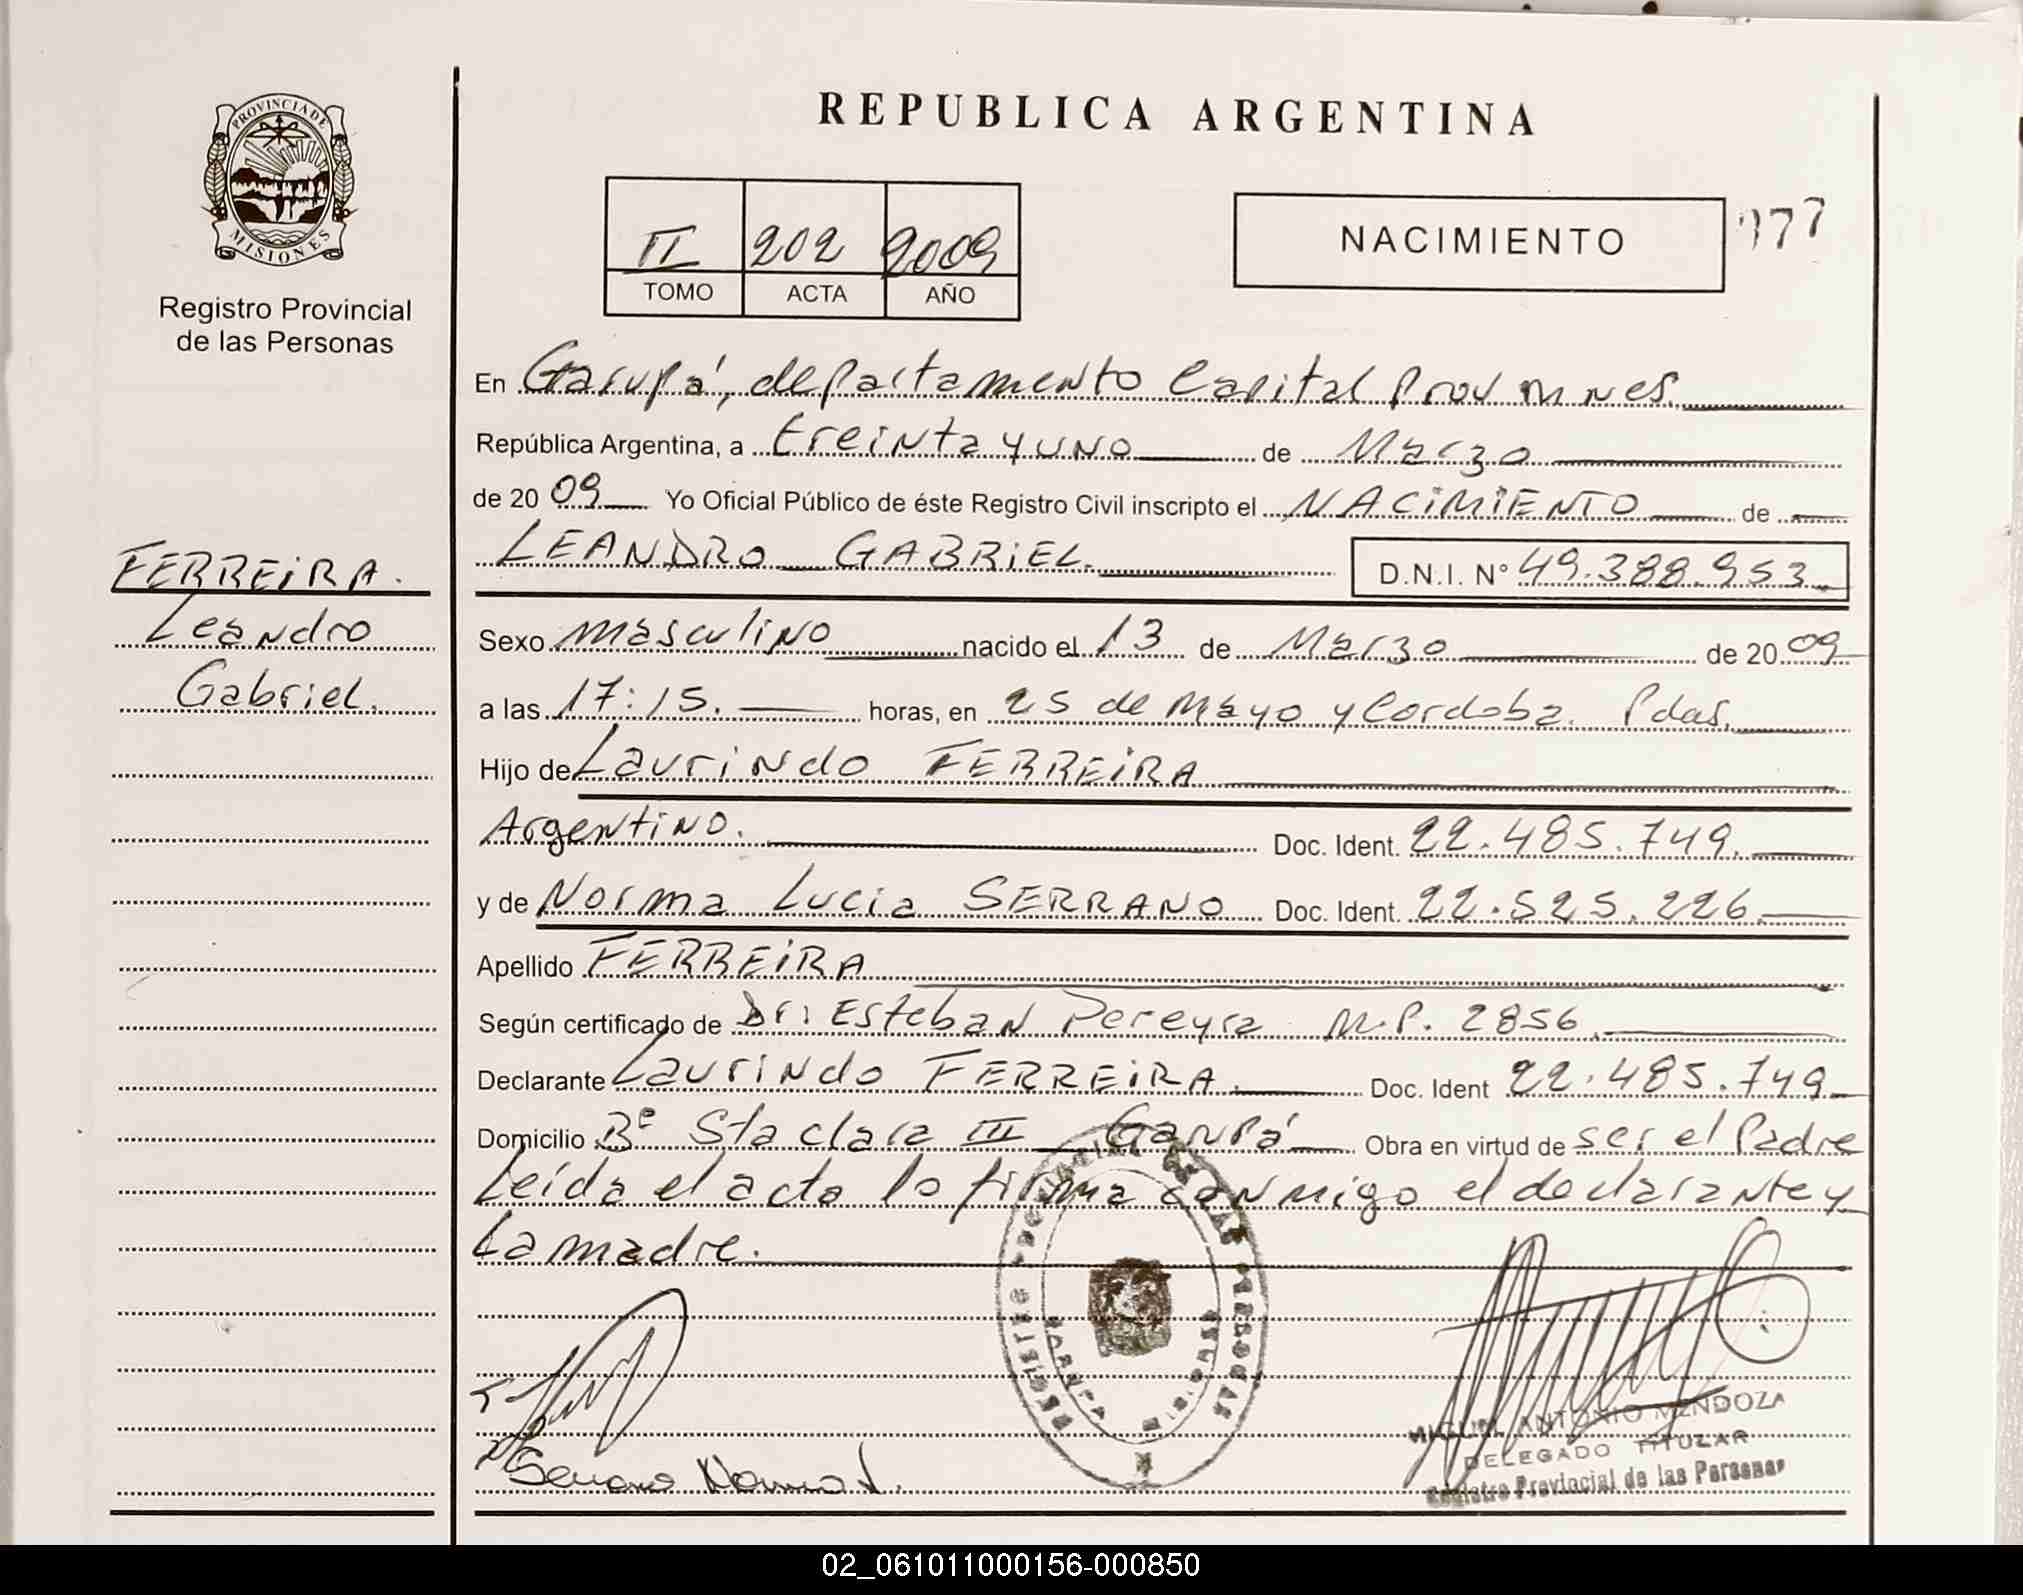 REPUBLICA ARGENTINA
PROVINCIA DE
MISIONES
Registro Provincial
de las Personas
II 202 2009
TOMO ACTA AÑO
NACIMIENTO
177
En Garupá, departamento Capital Prov Mnes.
República Argentina, a treinta y uno de Marzo
de 20 09 Yo Oficial Público de éste Registro Civil inscripto el NACIMIENTO de
LEANDRO GABRIEL. D.N.I. N° 49.388.953
FERREIRA.
Leandro
Gabriel.
Sexo masculino nacido el 13 de Marzo de 20 09
a las 17:15. horas, en 25 de Mayo y Cordoba. Pdas.
Hijo de Laurindo FERREIRA
Argentino. Doc. Ident. 22.485.749.
y de Norma Lucia SERRANO Doc. Ident. 22.525.226.
Apellido FERREIRA
Según certificado de Dr: Esteban Pereyra M.P. 2856.
Declarante Laurindo FERREIRA. Doc. Ident 22.485.749
Domicilio B° Sta clara III Garupá Obra en virtud de ser el Padre
Leída el acta lo firma conmigo el declarante y
La madre.
Serrano Norma L.
MIGUEL ANTONIO MENDOZA
DELEGADO TITULAR
Registro Provincial de las Personas
02_061011000156-000850